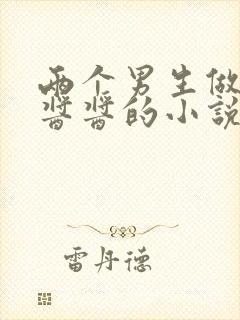 两个男生做
酱酱的小說
雷丹德